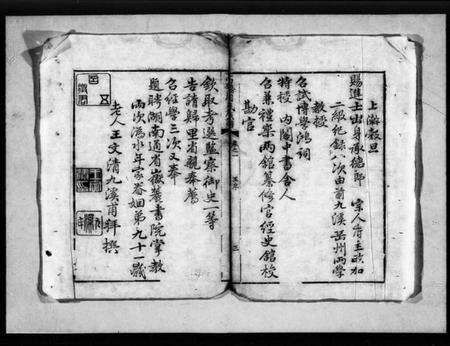 上澣穀旦
賜進士出身承德郎 宗人府主政加
二級紀錄八次由前九溪岳州兩學
教授
召試博學鴻詞
特授 內閣中書舍人
召兼禮樂兩館纂修官經史館校
勘官
欽取考選監察御史一等
告請歸里省親奉薦
召經學三次又奉
題聘湖南通省嶽麓書院掌教
兩次溈水年家眷姻弟九十一歲
老人王文清九溪甫拜撰